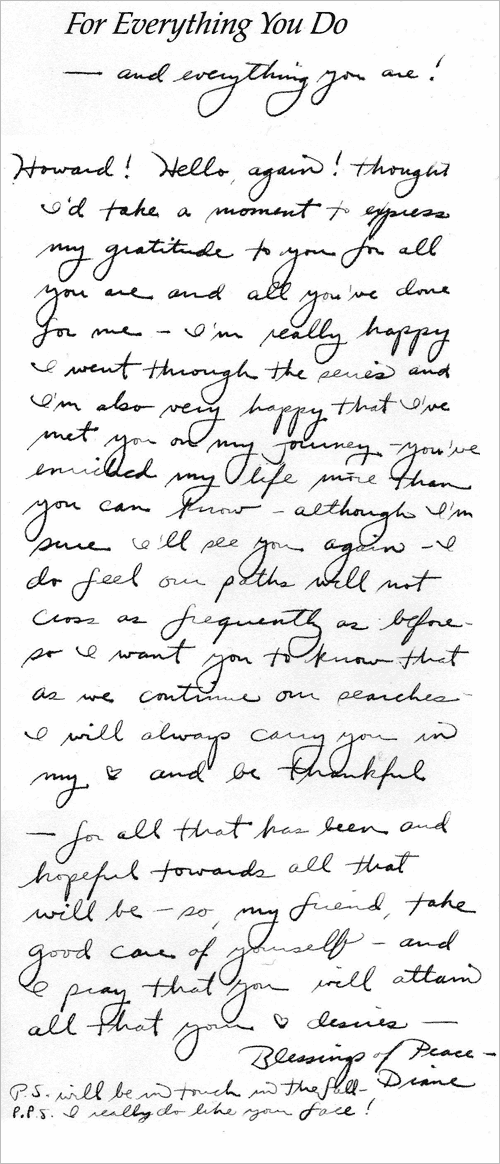 For Everything You Do
— and everything you are!
Howard! Hello, again! thought
I'd take a moment to express
my gratitude to you for all
you are and all you've done
for me – I'm really happy
I went through the series and
I'm also very happy that I've
met you on my journey – you've
enriched my life more than
you can know – although I'm
sure I'll see you again – I
do feel our paths will not
cross as frequently as before –
so I want you to know that
as we continue our searches
I will always carry you in
my ♡ and be thankful
— for all that has been and
hopeful towards all that
will be – so, my friend, take
good care of yourself – and
I pray that you will attain
all that your ♡ desires —
Blessings of Peace –
Diane
P.S. will be in touch in the fall –
P.P.S. I really do like your face!